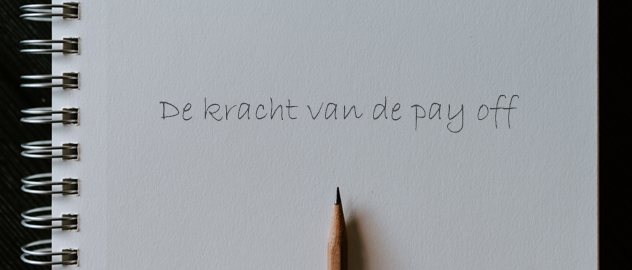 De kracht van de pay off